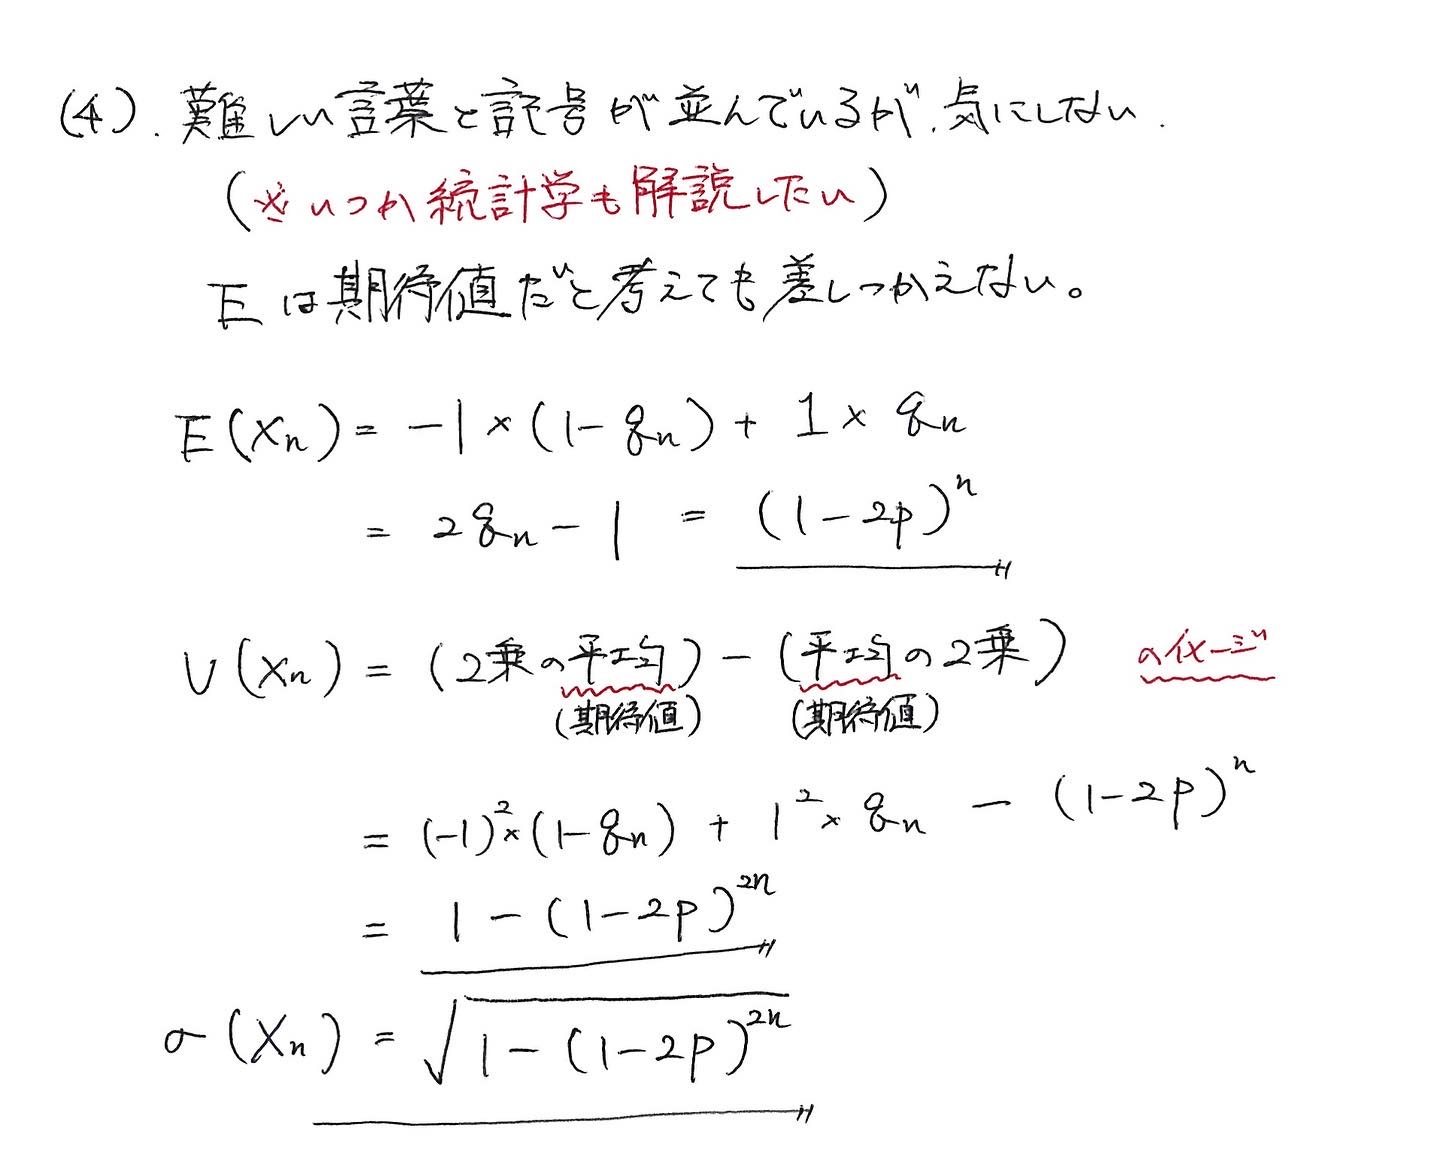 (4). 難しい言葉と記号が並んでいるが、気にしない.
(※いつか統計学も解説したい)
Eは期待値だと考えても差しつかえない。
E(Xn) = -1 × (1-qn) + 1 × qn
= 2qn - 1 = (1-2p)^n
V(Xn) = (2乗の平均) - (平均の2乗) のイメージ
(期待値) (期待値)
= (-1)^2 × (1-qn) + 1^2 × qn - (1-2p)^n
= 1 - (1-2p)^2n
σ(Xn) = √1 - (1-2p)^2n